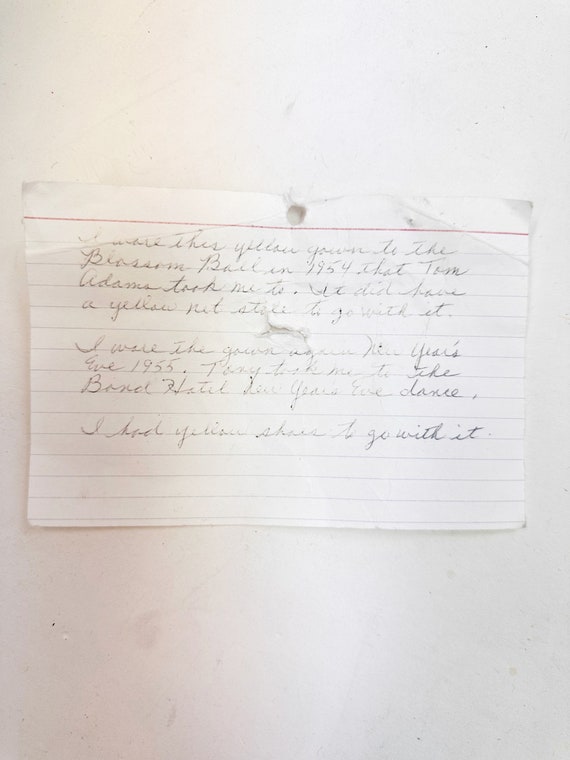 I wore this yellow gown to the
Blossom Ball in 1954 that Tom
Adams took me to. It did have
a yellow net stole to go with it.
I wore the gown again New Year's
Eve 1955. Tony took me to the
Bond Hotel New Year's Eve dance.
I had yellow shoes to go with it.